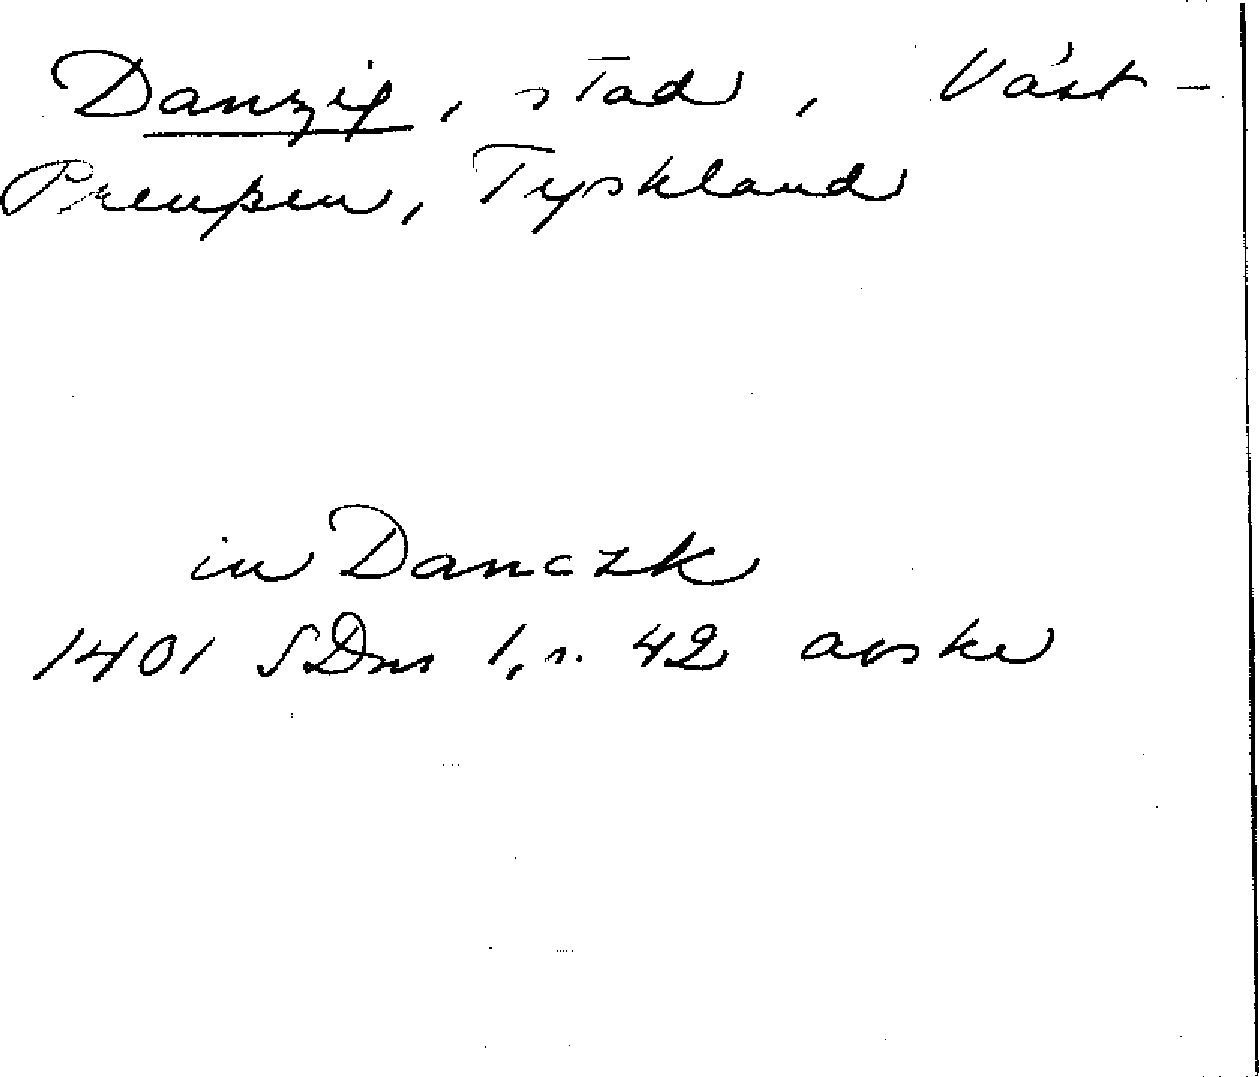 Danzig, stad, Väst-
Preußen, Tyskland
in Danczk
1401 SDns 1, s. 42 avskr